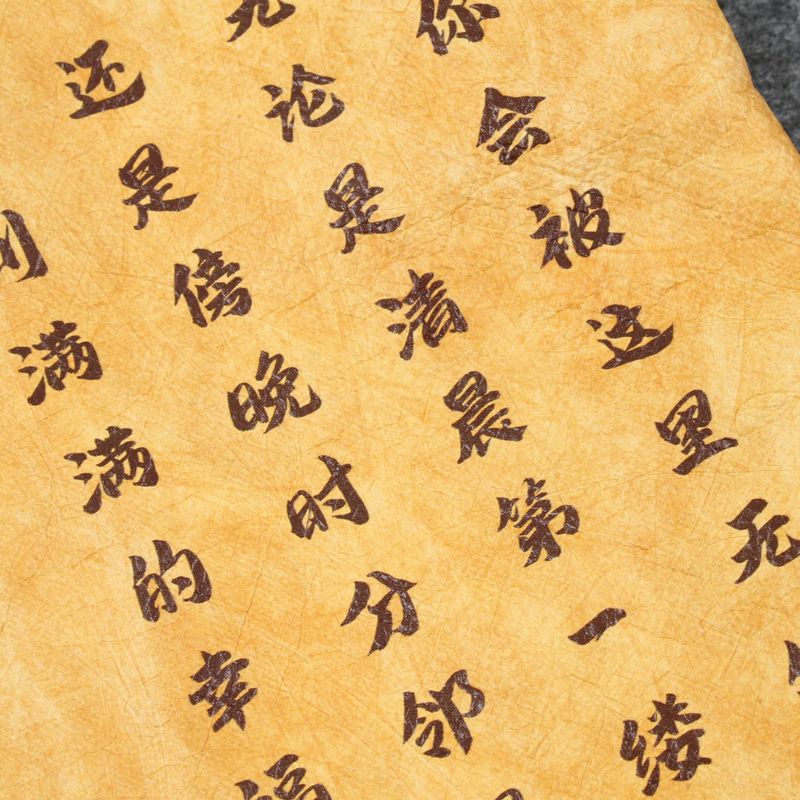 你会被这里无
无论是清晨第一缕
还是傍晚时分邻
满满的幸福